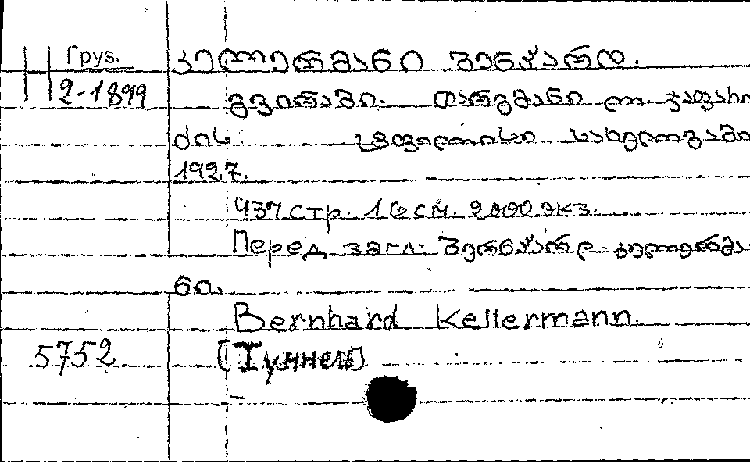 Груз. კელლერმანი ბერნჰარდ.
2-1899 გვირაბი. თარგმანი ლ. ჯაფარი
ძის. ტფილისი სახელგამი
1927.
437 стр. 16 см. 2000 экз.
Перед загл. ბერნჰარდ კელლერმა
ნი.
Bernhard Kellermann.
5752 [Туннель]